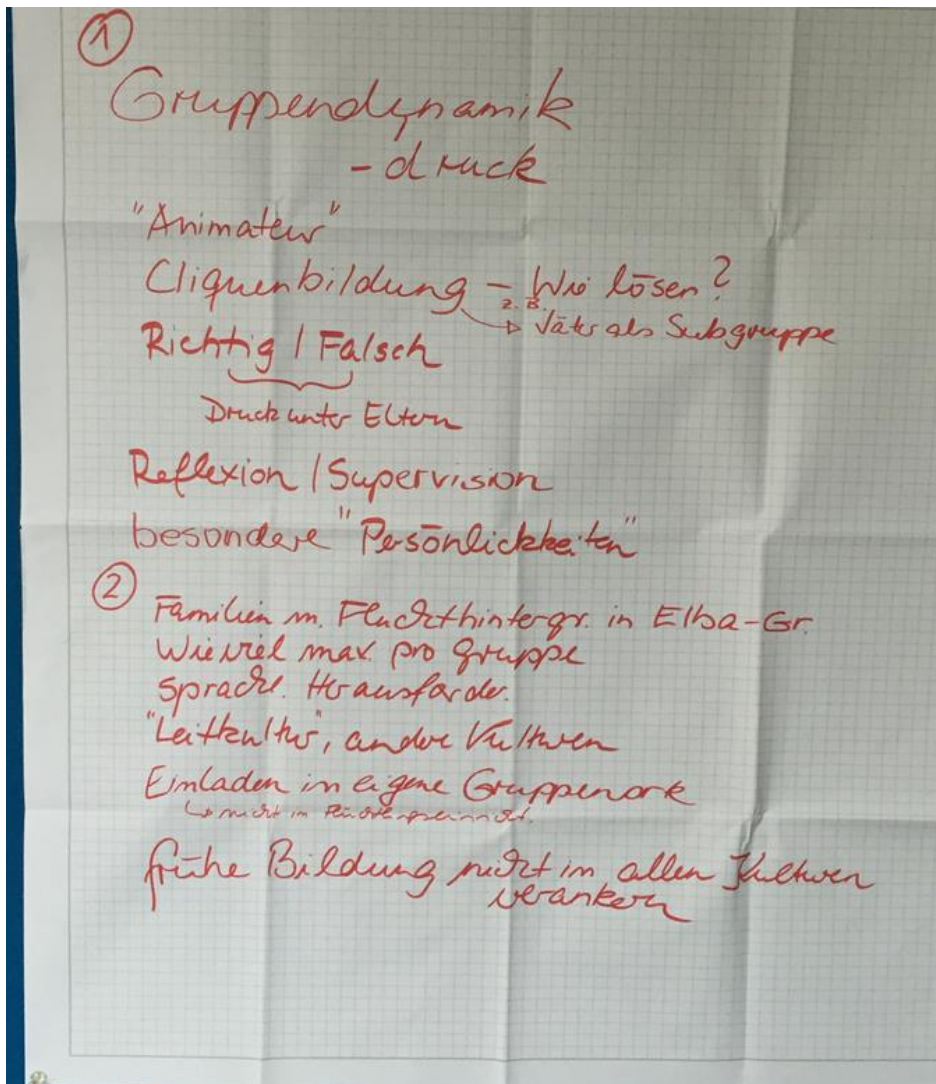 ①
Gruppendynamik
- druck
"Animateur"
Cliquenbildung - Wie lösen?
z.B. Väter als Subgruppe
Richtig / Falsch
Druck unter Eltern
Reflexion / Supervision
besondere "Persönlichkeiten"
②
Familien m. Fluchthintergr. in Elba-Gr.
Wieviel max. pro Gruppe
Sprachl. Herausforder.
"Leitkultur", andere Kulturen
Einladen in eigene Gruppenorte
↳ nicht in
frühe Bildung nicht in allen Kulturen
verankern